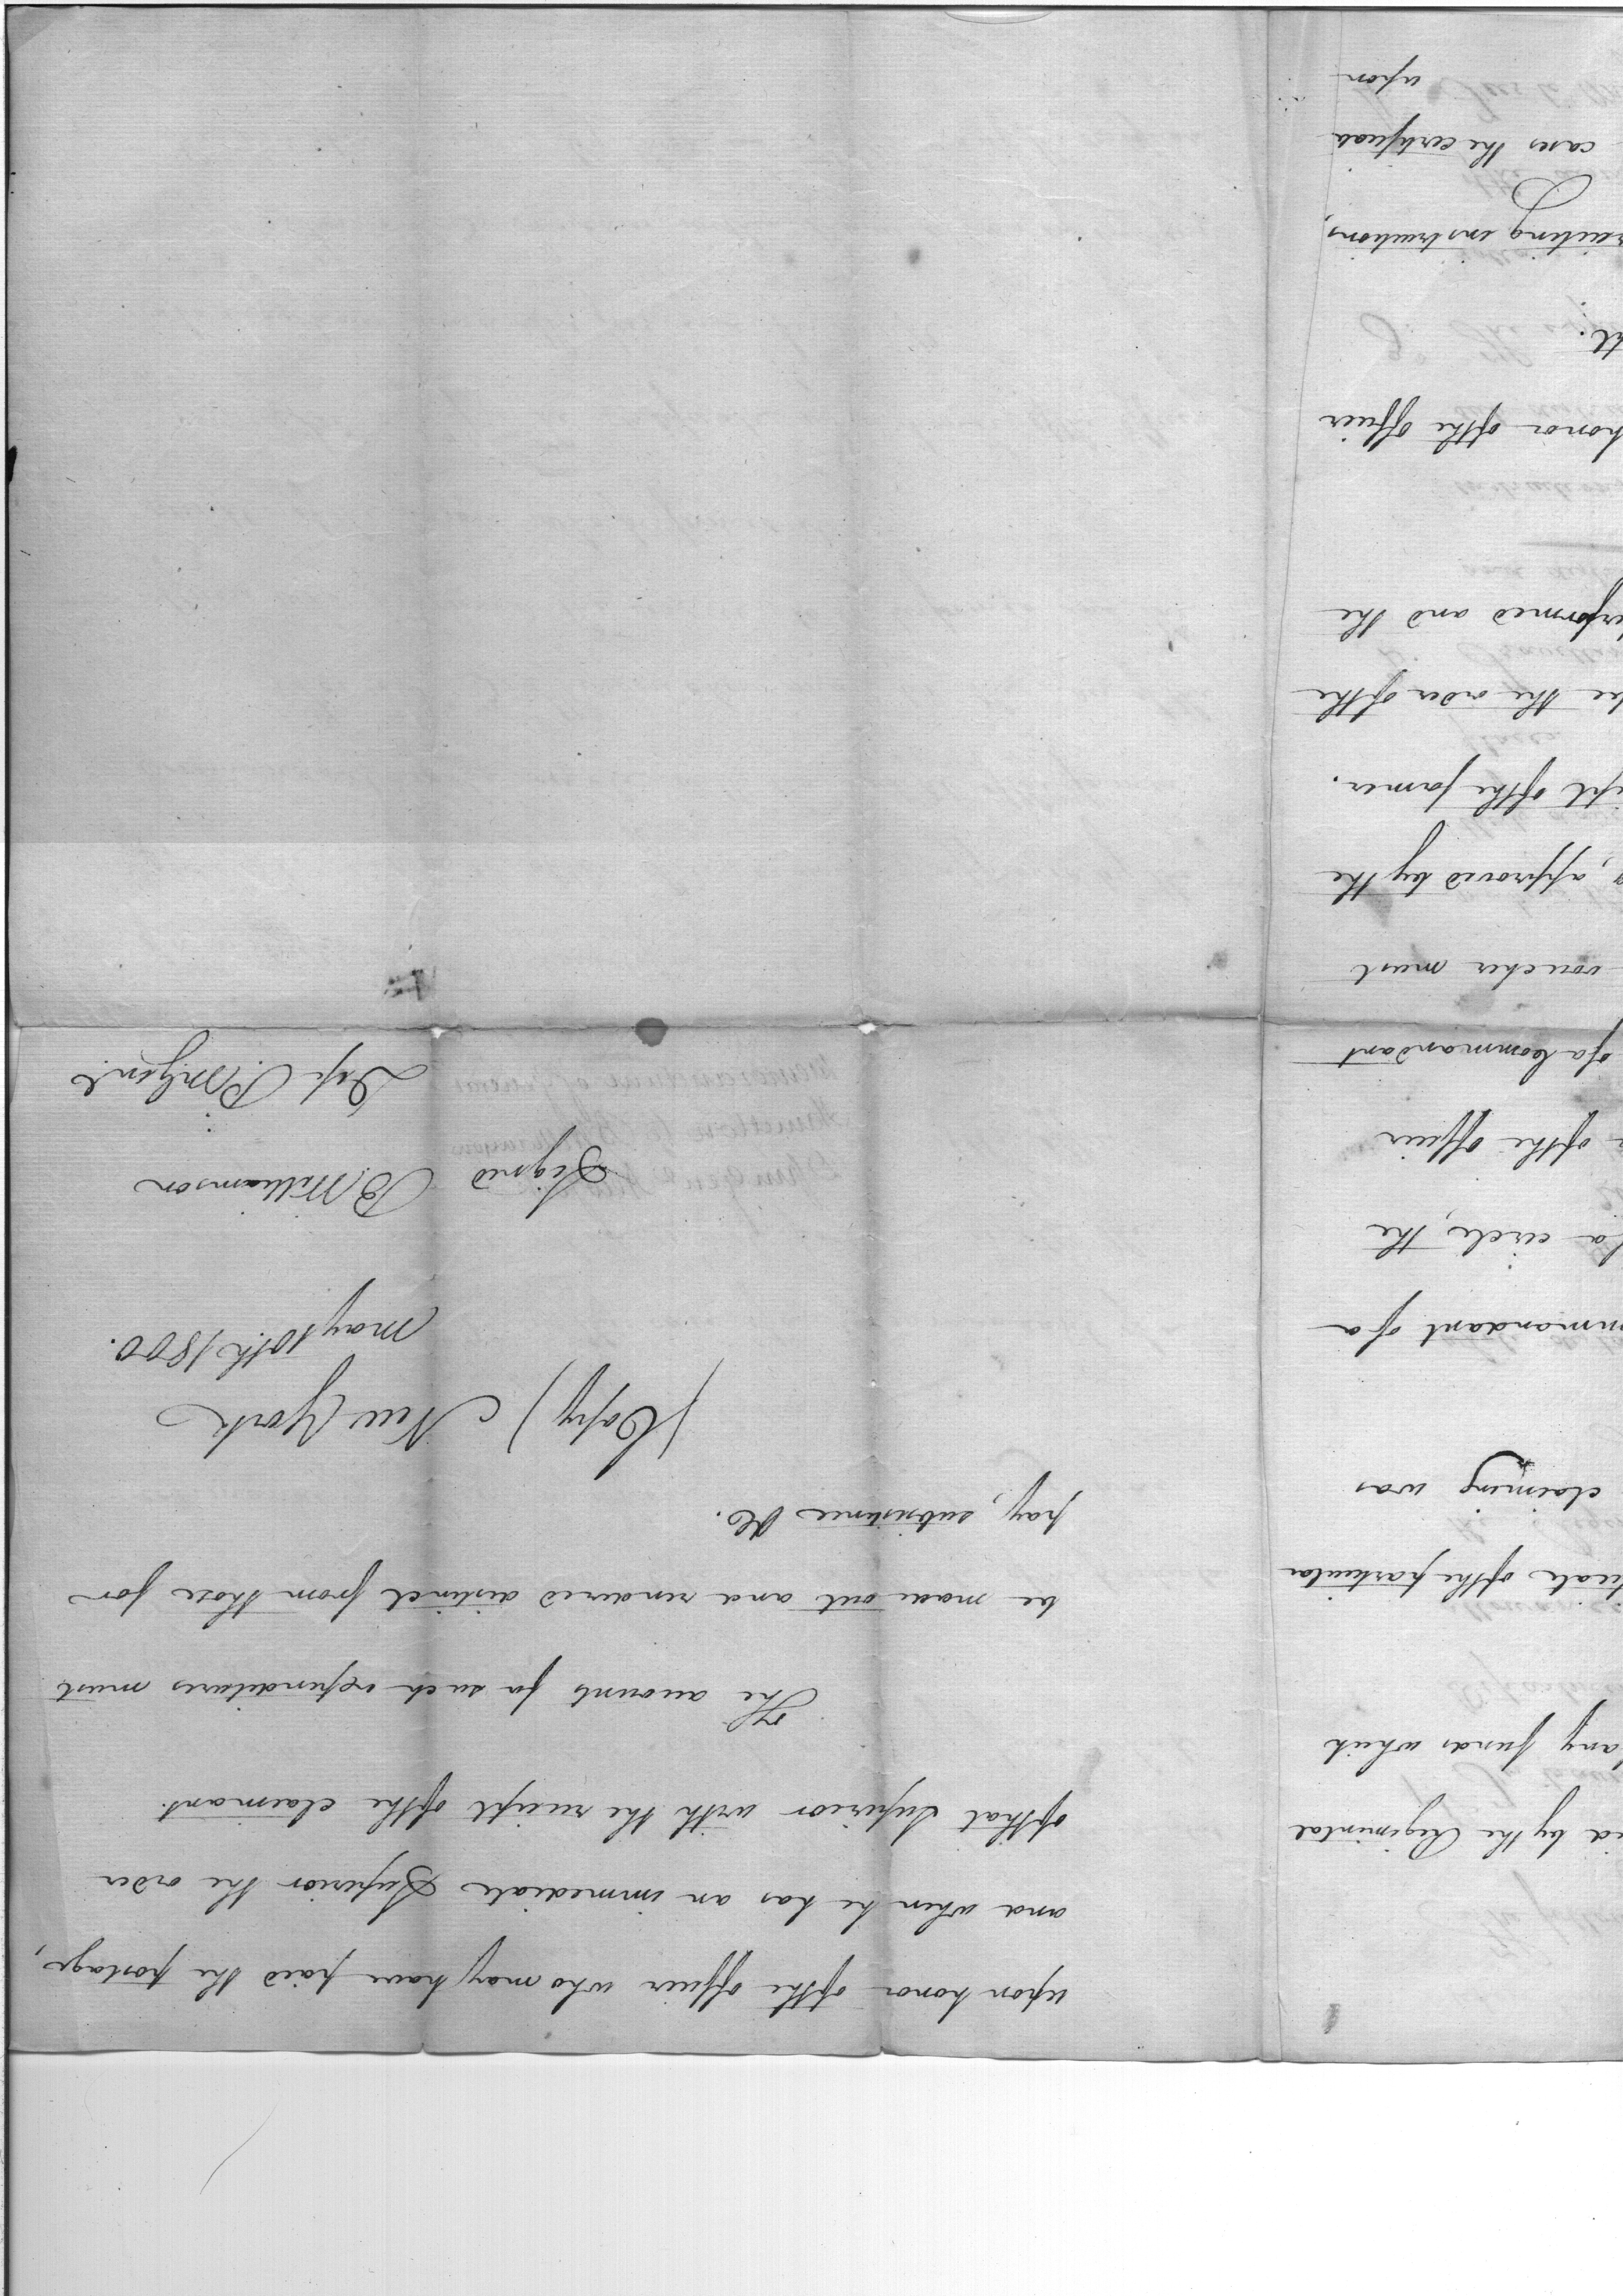 upon honor of the officer who may have paid the postage,
and when he has an immediate Superior the order
of that Superior with the receipt of the claimant.
The accounts for such expenditures must
be made out and rendered distinct from those for
pay, subsistence &c.
(Copy) New York
may 10th. 1800.
Signed B Williamson
Dep P. M. Genl.
by the Regimental
any funds which
of the particular
claiming was
of a
a circle, the
of the officer
of a Commandant
voucher must
approved by the
of the former.
the order of the
and the
honor of the officer
instructions,
cases the certificate
upon